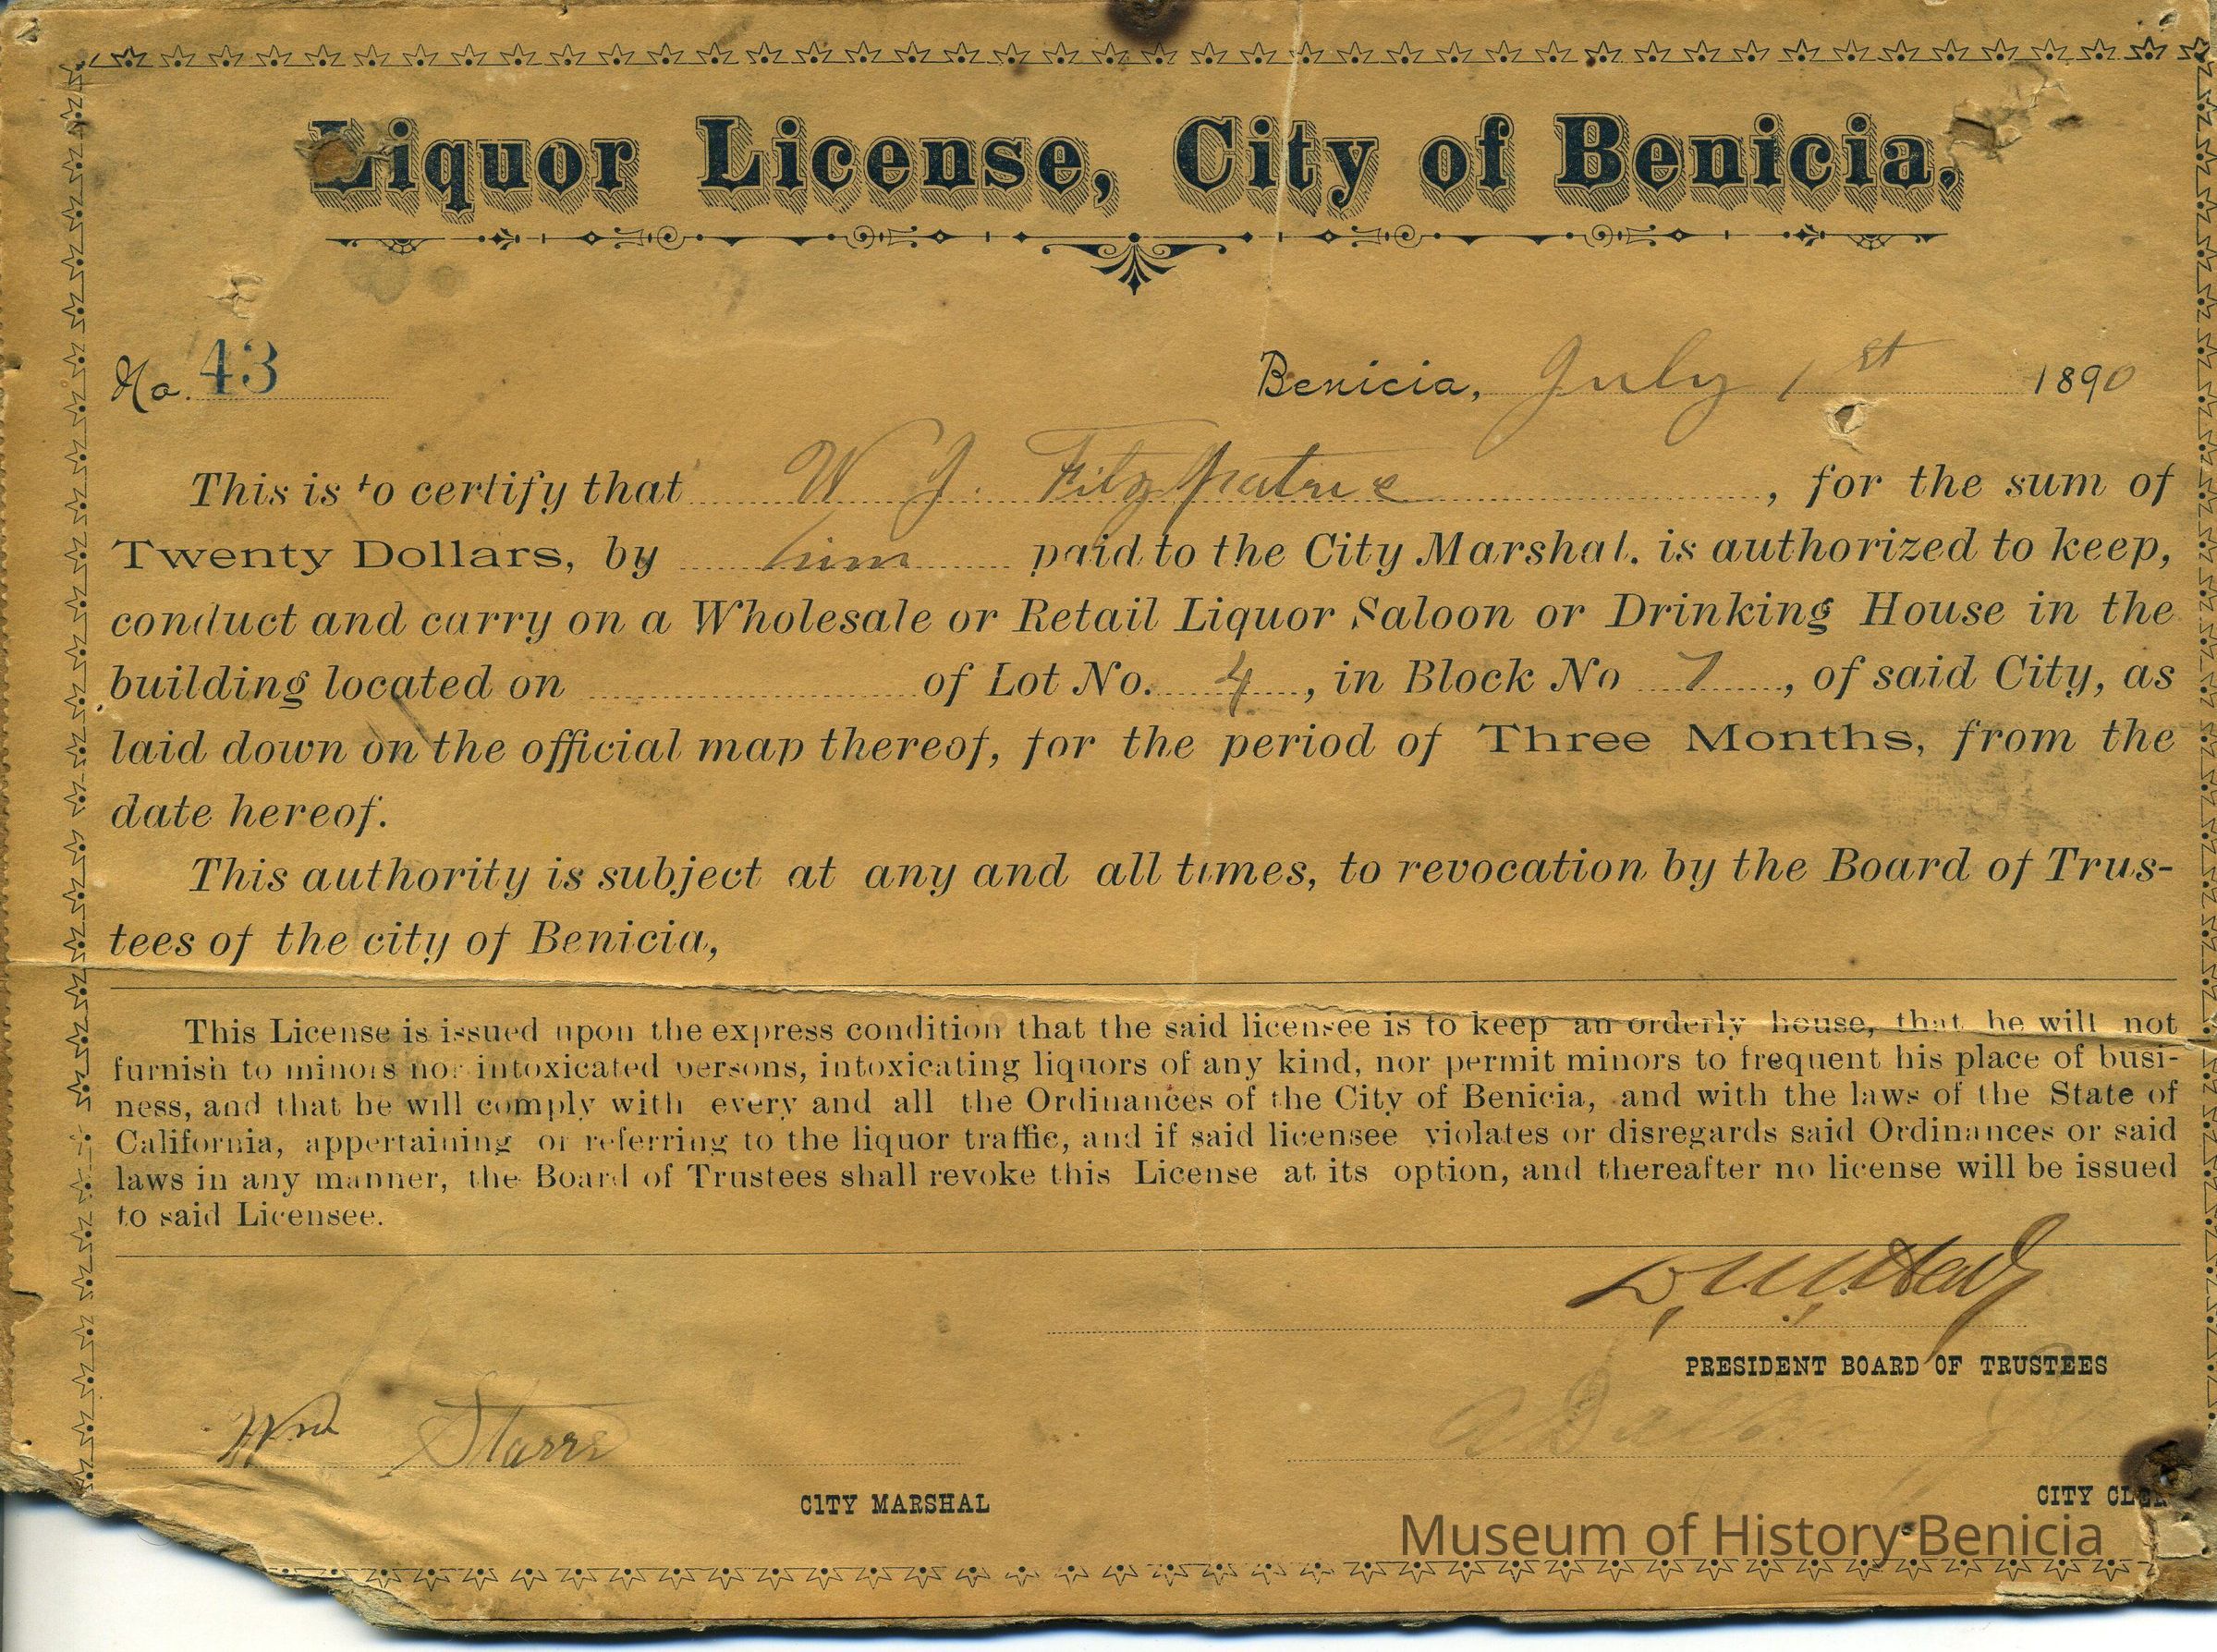 Liquor License, City of Benicia.
No. 43
Benicia, July 1st 1890
This is to certify that W J. Fitzpatric, for the sum of
Twenty Dollars, by him paid to the City Marshal. is authorized to keep,
conduct and carry on a Wholesale or Retail Liquor Saloon or Drinking House in the
building located on of Lot No. 4, in Block No 7, of said City, as
laid down on the official map thereof, for the period of Three Months, from the
date hereof.
This authority is subject at any and all times, to revocation by the Board of Trus-
tees of the city of Benicia,
This License is issued upon the express condition that the said licensee is to keep an orderly house, that he will not
furnish to minors nor intoxicated persons, intoxicating liquors of any kind, nor permit minors to frequent his place of busi-
ness, and that he will comply with every and all the Ordinances of the City of Benicia, and with the laws of the State of
California, appertaining or referring to the liquor traffic, and if said licensee violates or disregards said Ordinances or said
laws in any manner, the Board of Trustees shall revoke this License at its option, and thereafter no license will be issued
to said Licensee.
PRESIDENT BOARD OF TRUSTEES
Wm Starrs
CITY MARSHAL
CITY CLER
Museum of History Benicia